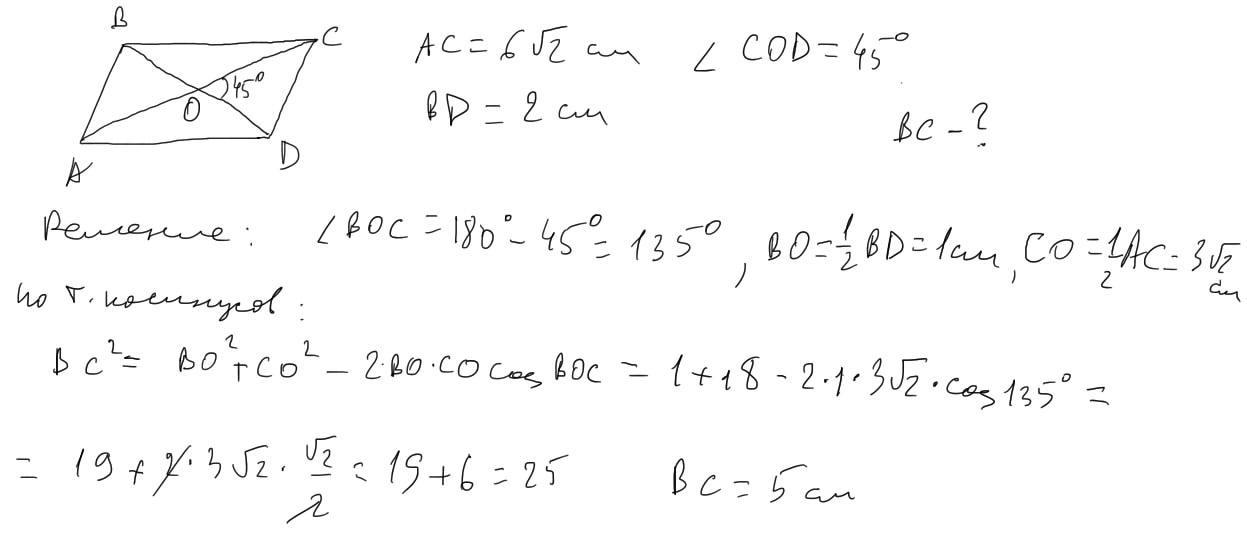 B
C
45°
O
A
D
AC = 6√2 см ∠ COD = 45°
BD = 2 см
BC - ?
Решение: ∠BOC = 180° - 45° = 135°, BO = 1/2 BD = 1 см, CO = 1/2 AC = 3√2 см
по т. косинусов:
BC² = BO² + CO² - 2·BO·CO cos BOC = 1 + 18 - 2·1·3√2·cos 135° =
= 19 + 2·3√2·√2/2 = 19 + 6 = 25 BC = 5 см